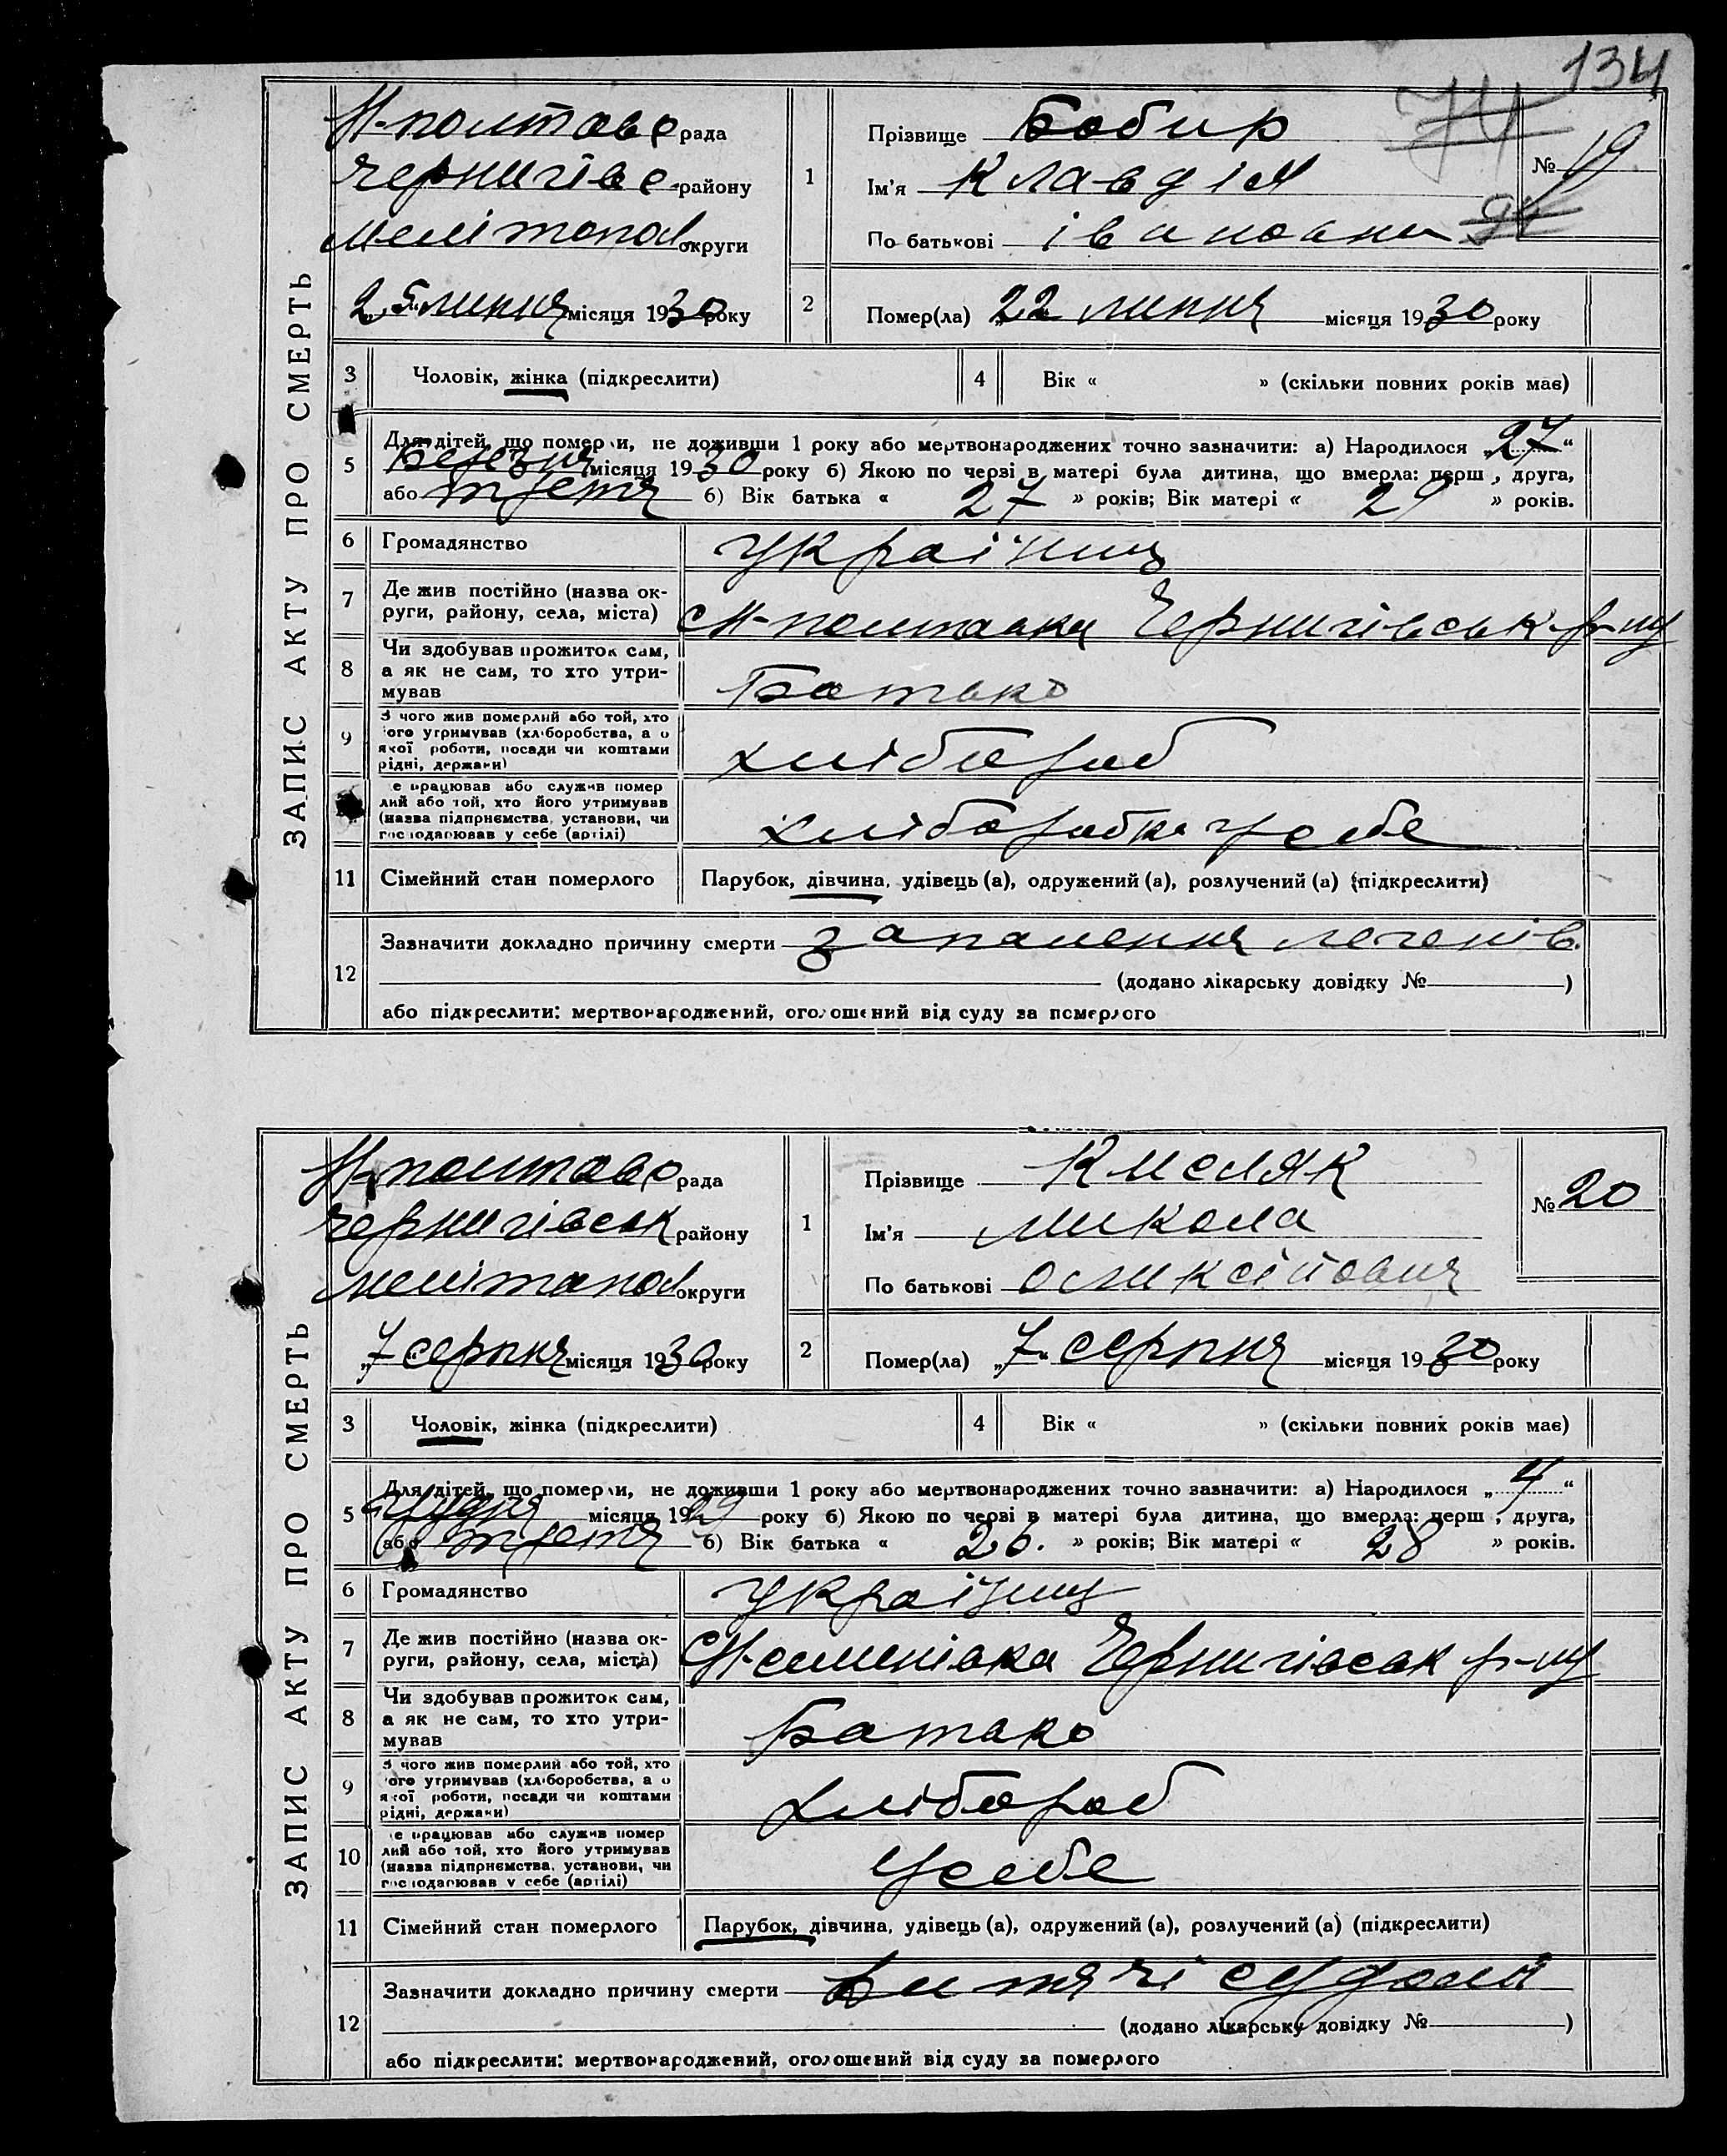 134
74
Н-полтавс рада
Прізвище Бобир
№ 19
Чернигівс району
1
Ім'я Клавдія
мелітопол округи
По батькові івановна
94
„25“ липня місяця 1930 року
2
Помер(ла) „22“ липня місяця 1930 року
ЗАПИС АКТУ ПРО СМЕРТЬ
3
Чоловік, жінка (підкреслити)
4
Вік « » (скільки повних років має)
5
Для дітей, що померли, не доживши 1 року або мертвонароджених точно зазначити: а) Народилося „27“
Березня місяця 1930 року б) Якою по черзі в матері була дитина, що вмерла: перш , друга,
або третя б) Вік батька « 27 » років; Вік матері « 29 » років.
6
Громадянство
україниц
7
Де жив постійно (назва ок-
руги, району, села, міста)
с Н-полтавка Чернигівськ р-ну
8
Чи здобував прожиток сам,
а як не сам, то хто утри-
мував
Батько
9
З чого жив померлий або той, хто
його утримував (хліборобства, а о
якої роботи, посади чи коштами
рідні, держави)
хлібороб
е працював або служив помер
лий або той, хто його утримував
(назва підприємства, установи, чи
господарював у себе (артілі)
хлібо у себе
11
Сімейний стан померлого
Парубок, дівчина, удівець (а), одружений (а), розлучений (а) (підкреслити)
12
Зазначити докладно причину смерти запалення легенів.
(додано лікарську довідку № )
або підкреслити: мертвонароджений, оголошений від суду за померлого
Н-полтавс рада
Прізвище Кисляк
№ 20
Чернигівськ району
1
Ім'я микола
мелітопол округи
По батькові оликсійович
„7“ серпня місяця 1930 року
2
Помер(ла) „7“ серпня місяця 1930 року
ЗАПИС АКТУ ПРО СМЕРТЬ
3
Чоловік, жінка (підкреслити)
4
Вік « » (скільки повних років має)
5
Для дітей, що померли, не доживши 1 року або мертвонароджених точно зазначити: а) Народилося „4“
Грудня місяця 1929 року б) Якою по черзі в матері була дитина, що вмерла: перш , друга,
або третя б) Вік батька « 26. » років; Вік матері « 28 » років.
6
Громадянство
україниц
7
Де жив постійно (назва ок-
руги, району, села, міста)
Чернигівськ р-ну
8
Чи здобував прожиток сам,
а як не сам, то хто утри-
мував
Батько
9
З чого жив померлий або той, хто
його утримував (хліборобства, а о
якої роботи, посади чи коштами
рідні, держави)
хлібороб
10
е працював або служив помер
лий або той, хто його утримував
(назва підприємства, установи, чи
господарював у себе (артілі)
У себе
11
Сімейний стан померлого
Парубок, дівчина, удівець (а), одружений (а), розлучений (а) (підкреслити)
12
Зазначити докладно причину смерти
(додано лікарську довідку № )
або підкреслити: мертвонароджений, оголошений від суду за померлого